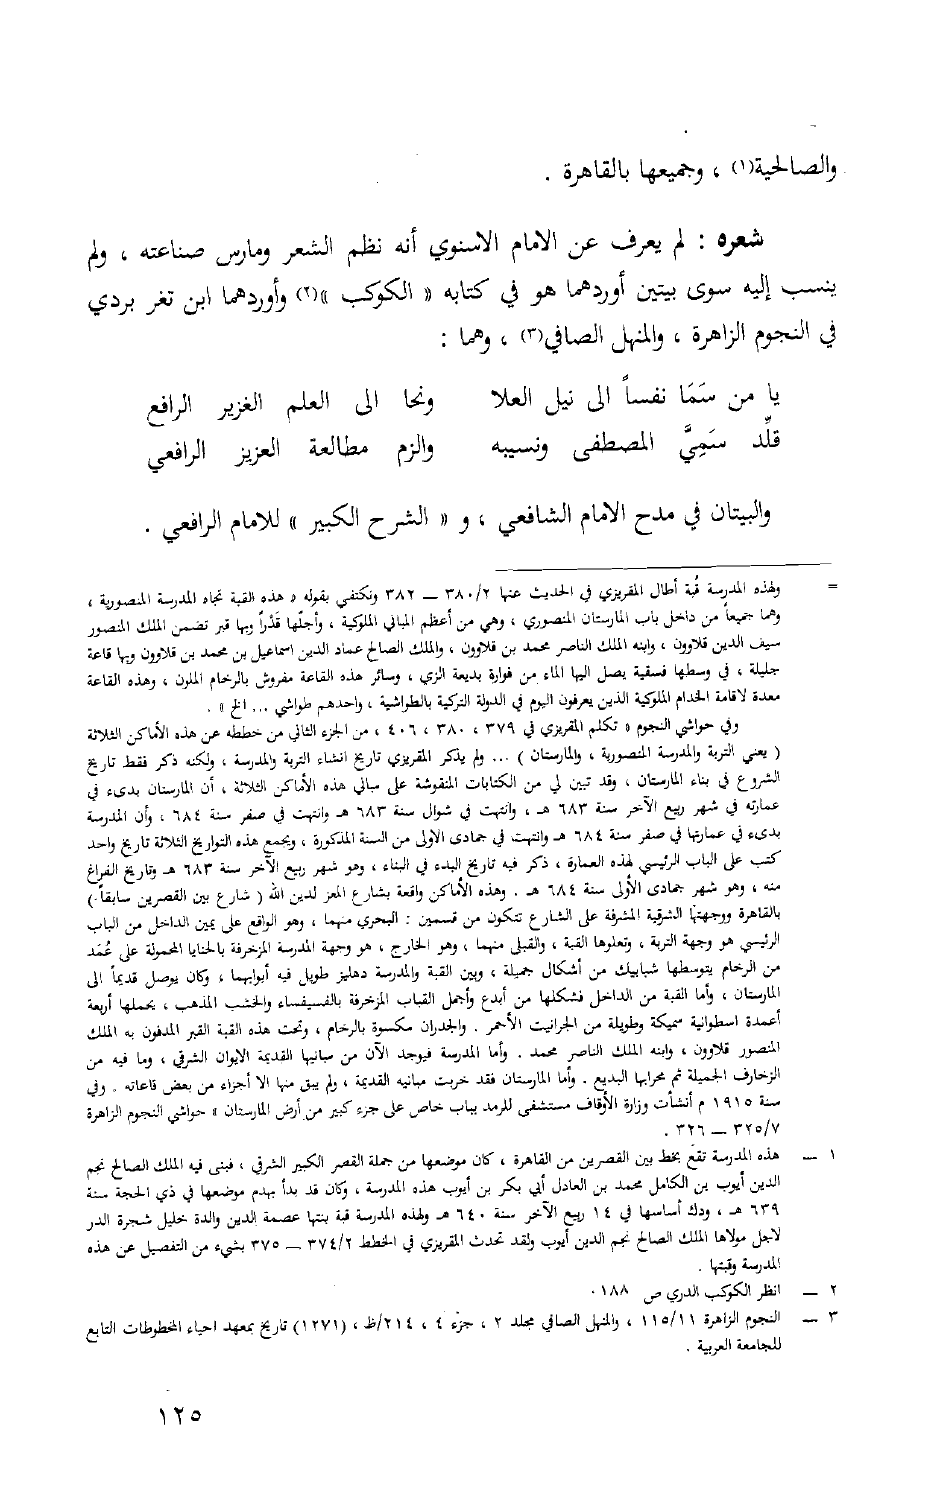 والصالحية(١) ، وجميعها بالقاهرة .
شعره : لم يعرف عن الامام الاسنوي أنه نظم الشعر ومارس صناعته ، ولم
ينسب إليه سوى بيتين أوردهما هو في كتابه « الكوكب »(٢) وأوردهما ابن تغر بردي
في النجوم الزاهرة ، والمنهل الصافي(٣) ، وهما :
يا من سَمَا نفساً الى نيل العلا ونحا الى العلم الغزير الرافع
قلِّد سَمِيَّ المصطفى ونسيبه والزم مطالعة العزيز الرافعي
والبيتان في مدح الامام الشافعي ، و « الشرح الكبير » للامام الرافعي .
= ولهذه المدرسة قُبة أطال المقريزي في الحديث عنها ٣٨٠/٢ — ٣٨٢ ونكتفي بقوله « هذه القبة تجاه المدرسة المنصورية ،
وهما جميعاً من داخل باب المارستان المنصوري ، وهي من أعظم المباني الملوكية ، وأجلّها قَدْراً وبها قبر تضمن الملك المنصور
سيف الدين قلاوون ، وابنه الملك الناصر محمد بن قلاوون ، والملك الصالح عماد الدين اسماعيل بن محمد بن قلاوون وبها قاعة
جليلة ، في وسطها فسقية يصل اليها الماء من فوارة بديعة الزي ، وسائر هذه القاعة مفروش بالرخام الملون ، وهذه القاعة
معدة لاقامة الخدام الملوكية الذين يعرفون اليوم في الدولة التركية بالطواشية ، واحدهم طواشي ... الخ » .
وفي حواشي النجوم « تكلم المقريزي في ٣٧٩ ، ٣٨٠ ، ٤٠٦ ، من الجزء الثاني من خططه عن هذه الأماكن الثلاثة
( يعني التربة والمدرسة المنصورية ، والمارستان ) ... ولم يذكر المقريزي تاريخ انشاء التربة والمدرسة ، ولكنه ذكر فقط تاريخ
الشروع في بناء المارستان ، وقد تبين لي من الكتابات المنقوشة على مباني هذه الأماكن الثلاثة ، أن المارستان بدىء في
عمارته في شهر ربيع الآخر سنة ٦٨٣ هـ ، وانتهت في شوال سنة ٦٨٣ هـ وانتهت في صفر سنة ٦٨٤ ، وأن المدرسة
بدىء في عمارتها في صفر سنة ٦٨٤ هـ وانتهت في جمادى الاولى من السنة المذكورة ، ويجمع هذه التواريخ الثلاثة تاريخ واحد
كتب على الباب الرئيسي لهذه العمارة ، ذكر فيه تاريخ البدء في البناء ، وهو شهر ربيع الآخر سنة ٦٨٣ هـ وتاريخ الفراغ
منه ، وهو شهر جمادى الأولى سنة ٦٨٤ هـ . وهذه الأماكن واقعة بشارع المعز لدين الله ( شارع بين القصرين سابقاً )
بالقاهرة ووجهتها الشرقية المشرفة على الشارع تتكون من قسمين : البحري منهما ، وهو الواقع على يمين الداخل من الباب
الرئيسي هو وجهة التربة ، وتعلوها القبة ، والقبلى منهما ، وهو الخارج ، هو وجهة المدرسة المزخرفة بالحنايا المحمولة على عُمَد
من الرخام يتوسطها شبابيك من أشكال جميلة ، وبين القبة والمدرسة دهليز طويل فيه أبوابهما ، وكان يوصل قديماً الى
المارستان ، وأما القبة من الداخل فشكلها من أبدع وأجمل القباب المزخرفة بالفسيفساء والخشب المذهب ، يحملها أربعة
أعمدة اسطوانية سميكة وطويلة من الجرانيت الأحمر . والجدران مكسوة بالرخام ، وتحت هذه القبة القبر المدفون به الملك
المنصور قلاوون ، وابنه الملك الناصر محمد . وأما المدرسة فيوجد الآن من مبانيها القديمة الايوان الشرقي ، وما فيه من
الزخارف الجميلة ثم محرابها البديع . وأما المارستان فقد خربت مبانيه القديمة ، ولم يبق منها الا أجزاء من بعض قاعاته . وفي
سنة ١٩١٥ م أنشأت وزارة الأوقاف مستشفى للرمد بباب خاص على جزء كبير من أرض المارستان » حواشي النجوم الزاهرة
٣٢٥/٧ — ٣٢٦ .
١ — هذه المدرسة تقع بخط بين القصرين من القاهرة ، كان موضعها من جملة القصر الكبير الشرقي ، فبنى فيه الملك الصالح نجم
الدين أيوب بن الكامل محمد بن العادل أبي بكر بن أيوب هذه المدرسة ، وكان قد بدأ بهدم موضعها في ذي الحجة سنة
٦٣٩ هـ ، ودك أساسها في ١٤ ربيع الآخر سنة ٦٤٠ هـ ولهذه المدرسة قبة بنتها عصمة الدين والدة خليل شجرة الدر
لاجل مولاها الملك الصالح نجم الدين أيوب ولقد تحدث المقريزي في الخطط ٣٧٤/٢ — ٣٧٥ بشيء من التفصيل عن هذه
المدرسة وقبتها .
٢ — انظر الكوكب الدري ص ١٨٨ .
٣ — النجوم الزاهرة ١١٥/١١ ، والمنهل الصافي مجلد ٢ ، جزء ٤ ، ٢١٤/ظ ، (١٢٧١) تاريخ بمعهد احياء المخطوطات التابع
للجامعة العربية .
١٢٥